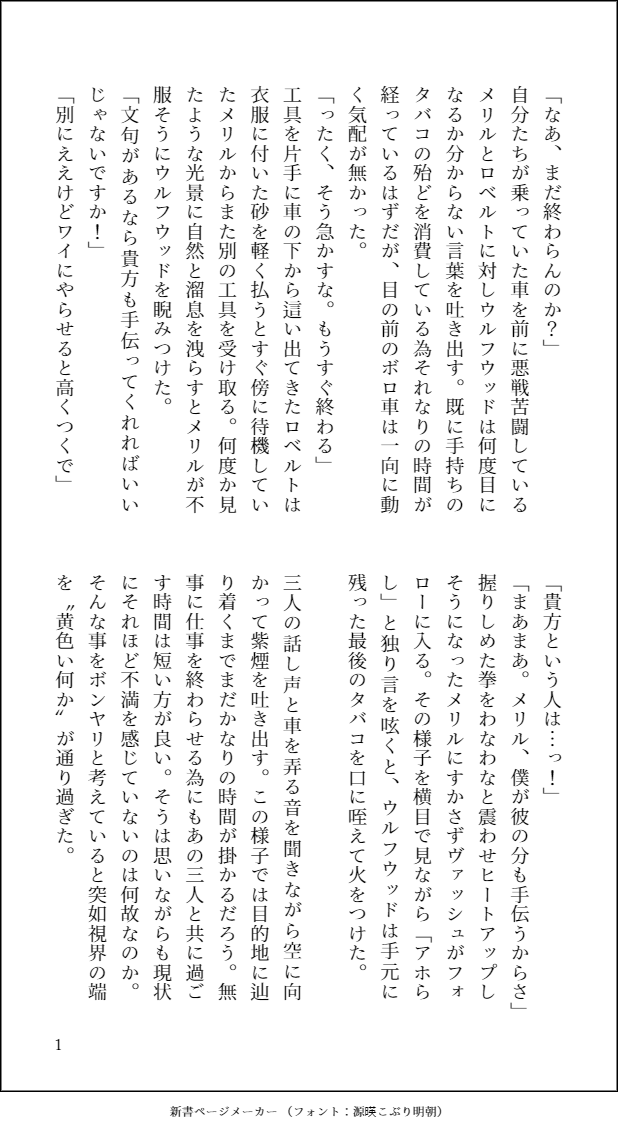 「なあ、まだ終わらんのか？」
自分たちが乗っていた車を前に悪戦苦闘している
メリルとロベルトに対しウルフウッドは何度目に
なるか分からない言葉を吐き出す。既に手持ちの
タバコの殆どを消費している為それなりの時間が
経っているはずだが、目の前のボロ車は一向に動
く気配が無かった。
「ったく、そう急かすな。もうすぐ終わる」
工具を片手に車の下から這い出てきたロベルトは
衣服に付いた砂を軽く払うとすぐ傍に待機してい
たメリルからまた別の工具を受け取る。何度か見
たような光景に自然と溜息を洩らすとメリルが不
服そうにウルフウッドを睨みつけた。
「文句があるなら貴方も手伝ってくれればいい
じゃないですか！」
「別にええけどワイにやらせると高くつくで」
「貴方という人は…っ！」
「まあまあ。メリル、僕が彼の分も手伝うからさ」
握りしめた拳をわなわなと震わせヒートアップし
そうになったメリルにすかさずヴァッシュがフォ
ローに入る。その様子を横目で見ながら「アホら
し」と独り言を呟くと、ウルフウッドは手元に
残った最後のタバコを口に咥えて火をつけた。
三人の話し声と車を弄る音を聞きながら空に向
かって紫煙を吐き出す。この様子では目的地に辿
り着くまでまだかなりの時間が掛かるだろう。無
事に仕事を終わらせる為にもあの三人と共に過ご
す時間は短い方が良い。そうは思いながらも現状
にそれほど不満を感じていないのは何故なのか。
そんな事をボンヤリと考えていると突如視界の端
を〝黄色い何か〟が通り過ぎた。
1
新書ページメーカー（フォント：源暎こぶり明朝）